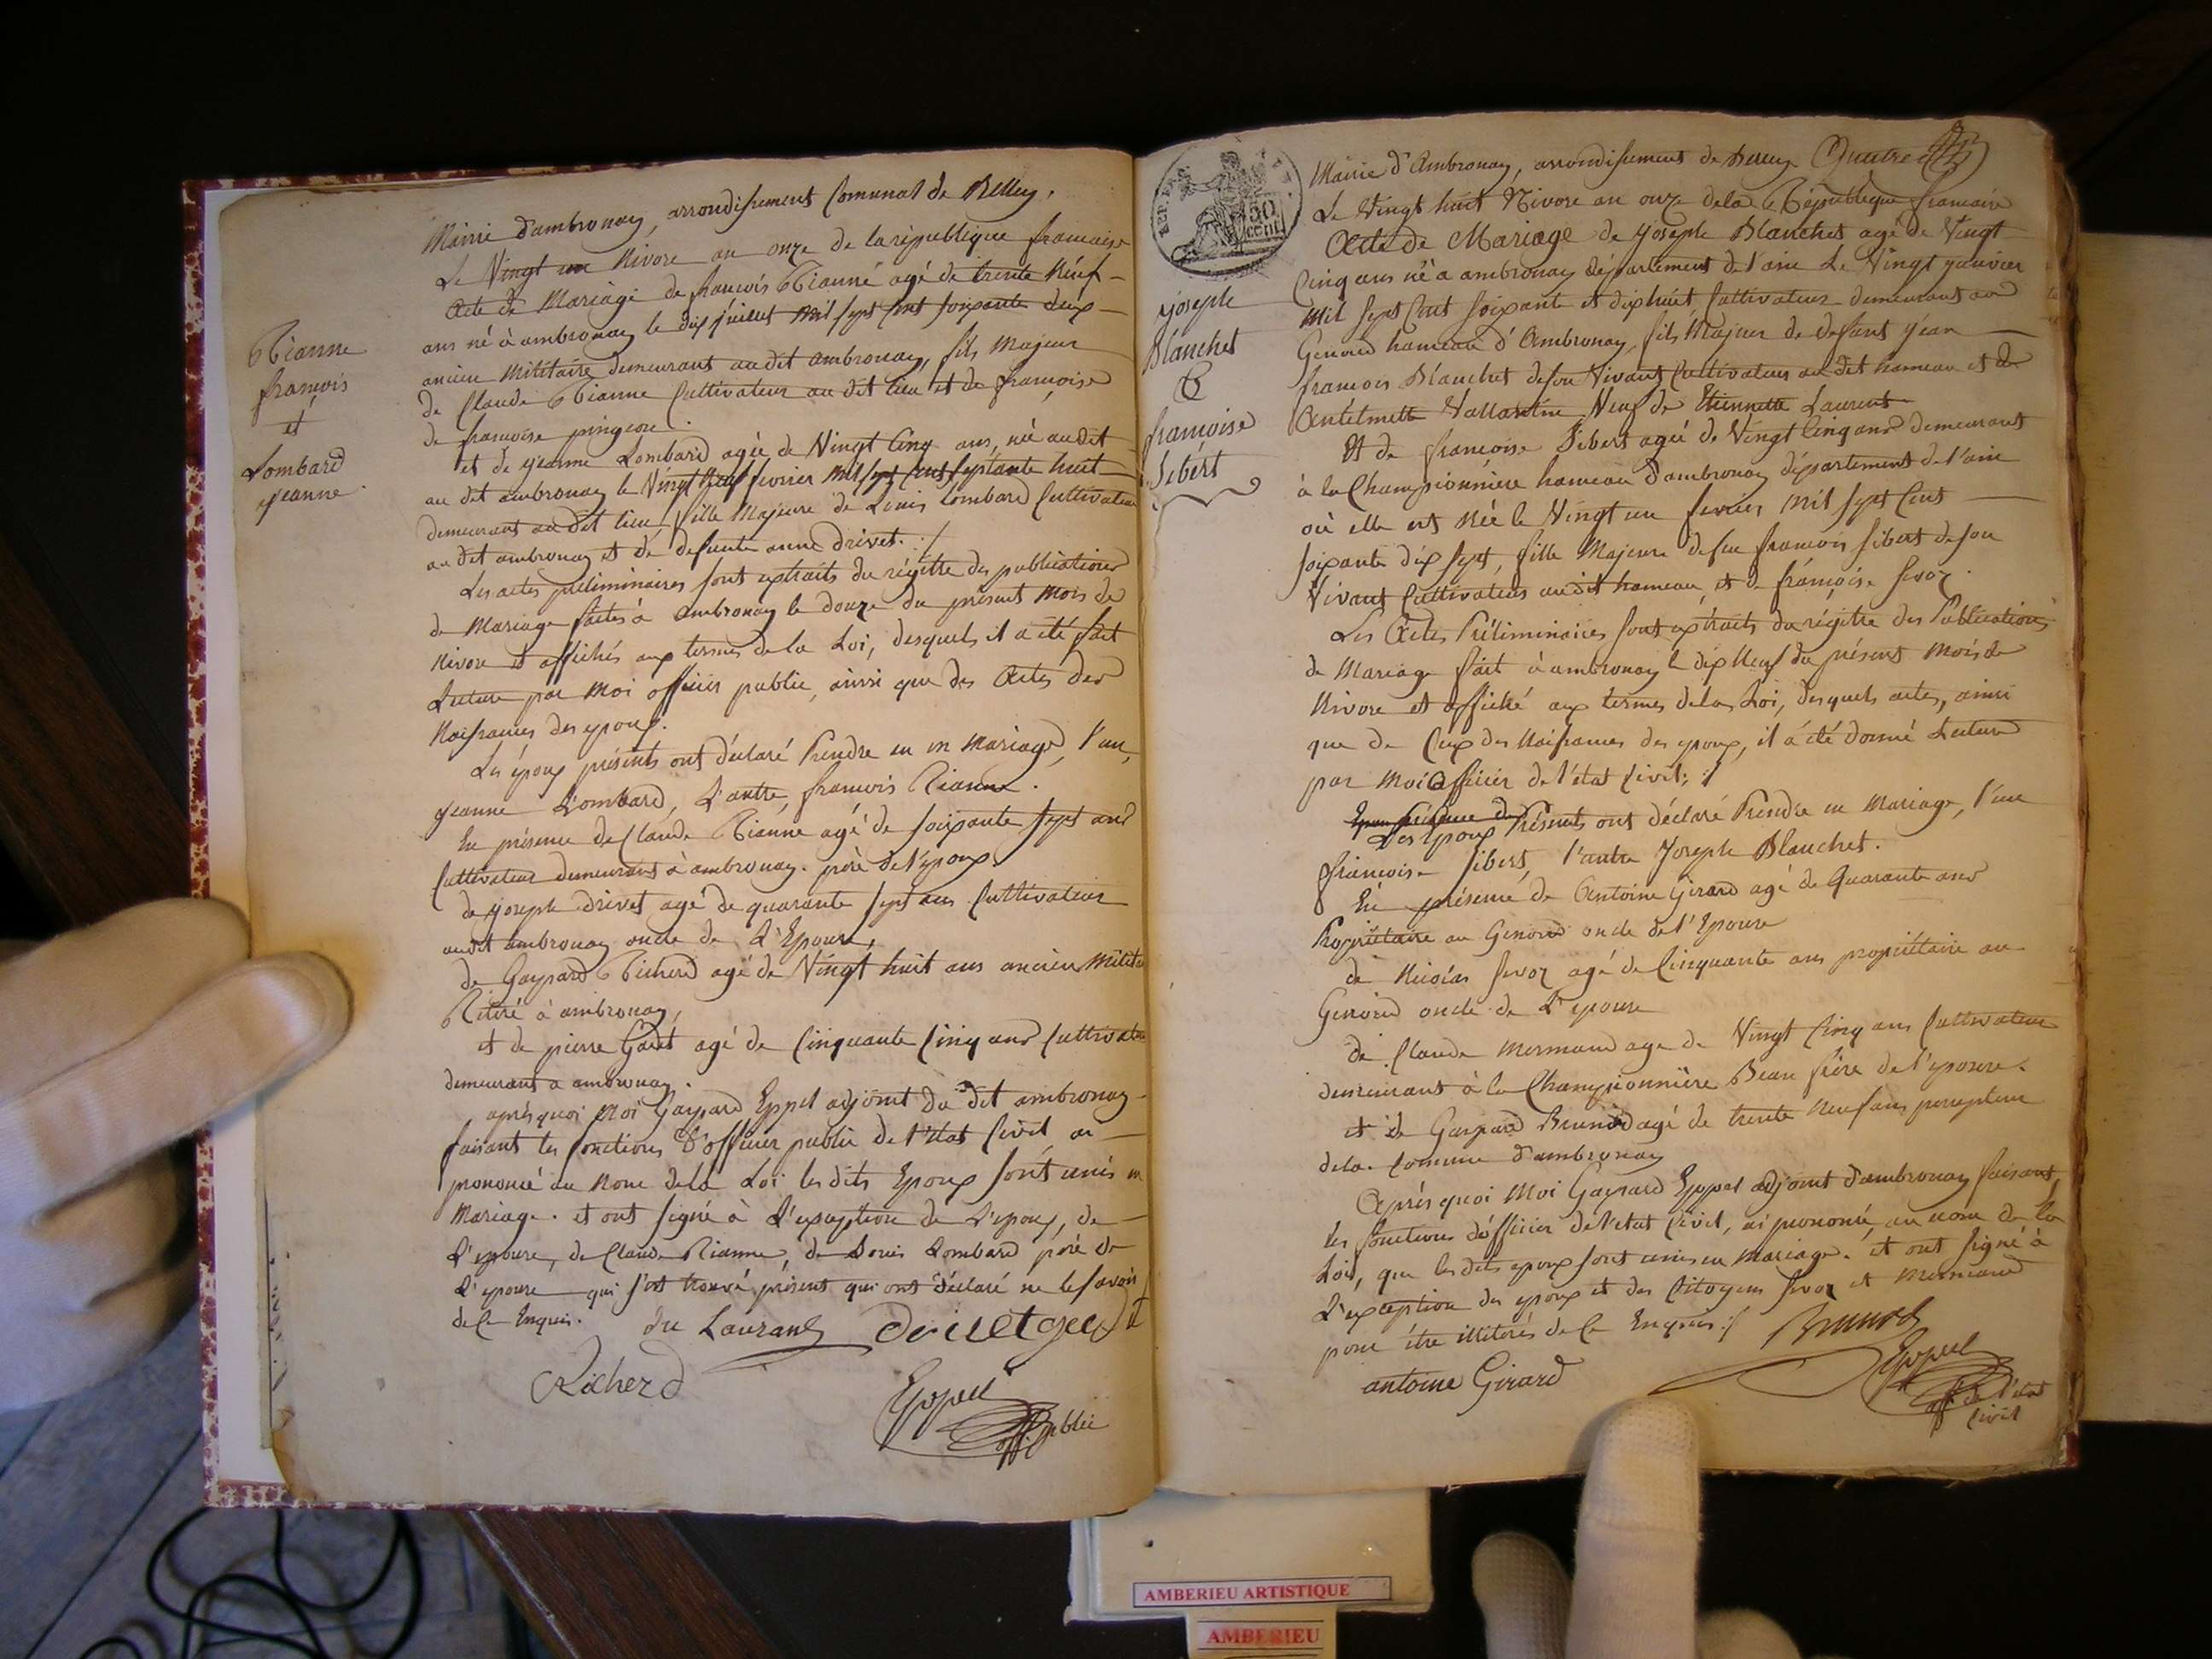 Mairie d'ambronay, arrondissement Comunal de Belley,
Le Vingt un Nivose an onze de la république francaise
Acte de Mariage de francois Tianne agé de trente Neuf
ans né à ambronay le dix juillet mil sept cent soixante deux
ancien Militaire demeurant au dit ambronay, fils Majeur
de Claude Tianne Cultivateur au dit lieu et de francoise
de francoise pingeon.
et de jeanne Lombard agée de Vingt Cinq ans, née au dit
au dit ambronay le Vingt Neuf fevrier Mil sept cent septante huit
demeurant au dit lieu, fille Majeure de Louis Lombard Cultivateur
au dit ambronay et de defunte anne drivet. :/
Les actes preliminaires sont extraits du régittre des publications
de Mariage faites à ambronay le douze du présent mois de
Nivose et affichés aux termes de la Loi, desquels il a été fait
Lecture par Moi officier public, ainsi que des Actes des
Naissances des epoux.
Les époux présents ont déclaré Prendre en un Mariage, l'un,
jeanne Lombard, L'autre, francois Tianne.
En présence de Claude Tianne agé de soixante sept ans
Cultivateur demeurant à ambronay. père de l'époux
de joseph drivet agé de quarante sept ans Cultivateur
audit ambronay oncle de L'Epouse,
de Gaspard Richerd agé de Vingt huit ans ancien Milite
Retiré à ambronay,
et de pierre Galet agé de Cinquante Cinq ans Cultivate
demeurant a ambronay.
après quoi Moi Gaspard Eppel adjoint du dit ambronay
faisant les fonctions d'officier public de l'état Civil ai
prononcé au Nom de la Loi les dits Epoux sont unis en
Mariage. et ont signé à L'exception de L'epoux, de
L'epouse, de Claude Tianne, de Louis Lombard père de
L'epouse qui s'est trouvé présent qui ont déclaré ne le savoir
de Ce Enquis.
du Laurant
Richerd
Eppel
off. public
Tianne
francois
et
Lombard
jeanne.
Mairie d'Ambronay, arrondissement de Belley Quatre
Le Vingt huit Nivose an onze de la République francaise
Acte de Mariage de joseph Blanchet agé de Vingt
Cinq ans né à ambronay département de l'ain Le Vingt janvier
Mil sept Cent soixant et dix huit Cultivateur demeurant au
Genoud hameau d'Ambronay, fils Majeur de defunt jean
francois Blanchet de son Vivant Cultivateur au dit hameau et de
Antelmette Vallantin Veuf de Etiennette Laurent
Et de francoise Sibert agée de Vingt Cinq ans demeurant
à la Championnière hameau d'ambronay département de l'ain
où elle est Née le Vingt un fevrier Mil sept Cent
soixante dix sept, fille Majeure de feu francois Sibert de son
Vivant Cultivateur au dit hameau, et de françoise fevoz.
Les Actes Préliminaires sont extraits du régittre des Publications
de Mariage fait à ambronay le dix Neuf du présent Mois de
Nivose et affiché aux termes de la Loi, desquels actes, ainsi
que de Ceux des Naissances des epoux, il a été donné Lecture
par Moi Officier de l'état Civil; :/
Les Epoux Présents ont déclaré Prendre en Mariage, l'une
françoise Sibert, l'autre Joseph Blanchet.
En présence de Antoine Girard agé de Quarante ans
Propriétaire au Genoud oncle de l'Epouse
de Nicolas fevoz agé de Cinquante ans propriétaire au
Genoud oncle de L'epouse
de Claude Mermand age de Vingt Cinq ans Cultivateur
demeurant à la Championnière Beau frère de l'epouse.
et de Gaspard Brunod agé de trente Neuf ans percepteur
de la Comune d'ambronay
Après quoi Moi Gaspard Eppel adjoint d'ambronay faisant
les fonctions d'officier de l'etat Civil, ai prononcé, au nom de la
Loi, que les dits epoux sont unis en Mariage. et ont signé à
L'exception des epoux et des Citoyens fevoz et Mermand
pour être illitérés de Ce Enquis :/
Brunod
antoine Girard
Eppel
off. de l'état
Civil
REP. FRA.
50
cent.
joseph
Blanchet
&
francoise
Sibert
AMBERIEU ARTISTIQUE
AMBERIEU